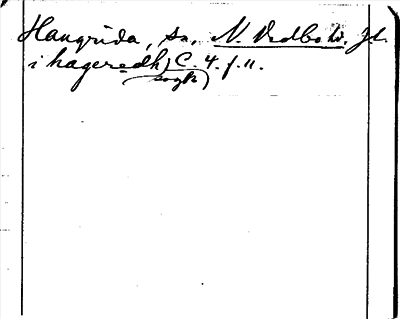 Hangrida, sn, N. Vedbo hd. Jl.
i hageredh C. 4. f. 11.
sogk